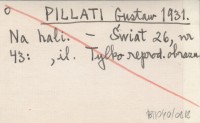 PILLATI Gustaw 1931.
Na hali. — Świat 26, nr
43: , il. Tylko reprod. obrazu